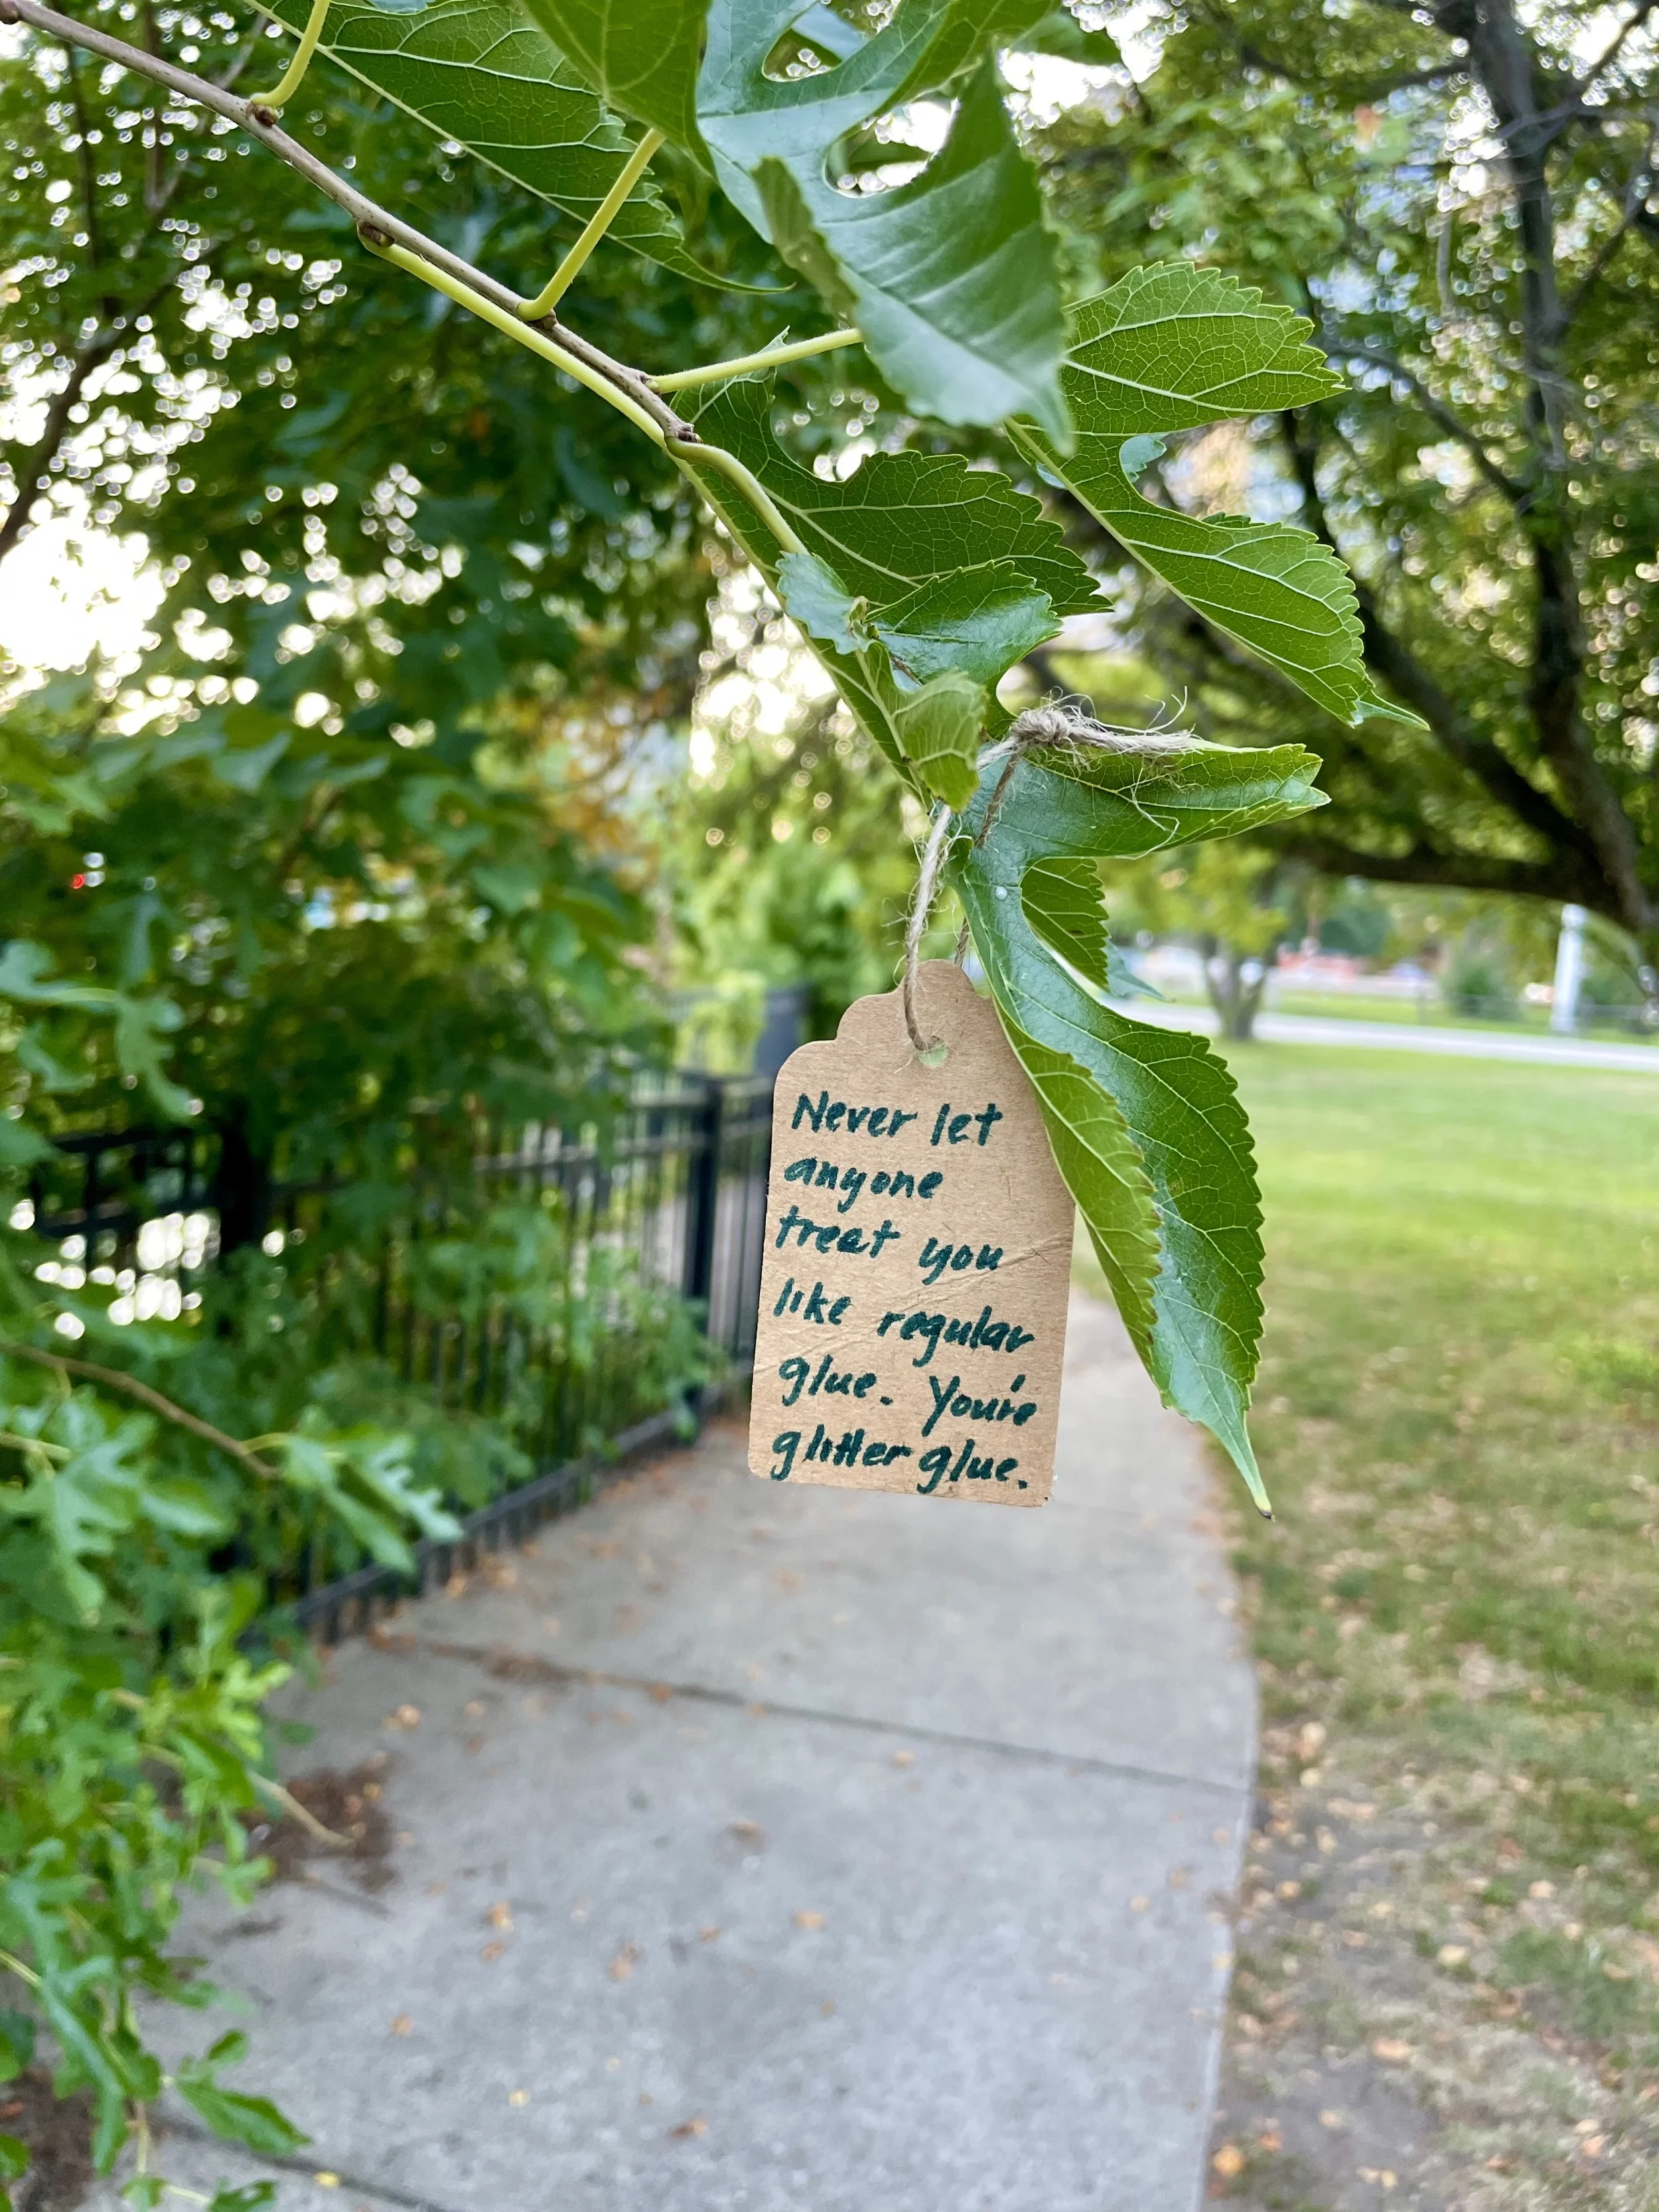 Never let
anyone
treat you
like regular
glue. You're
glitter glue.